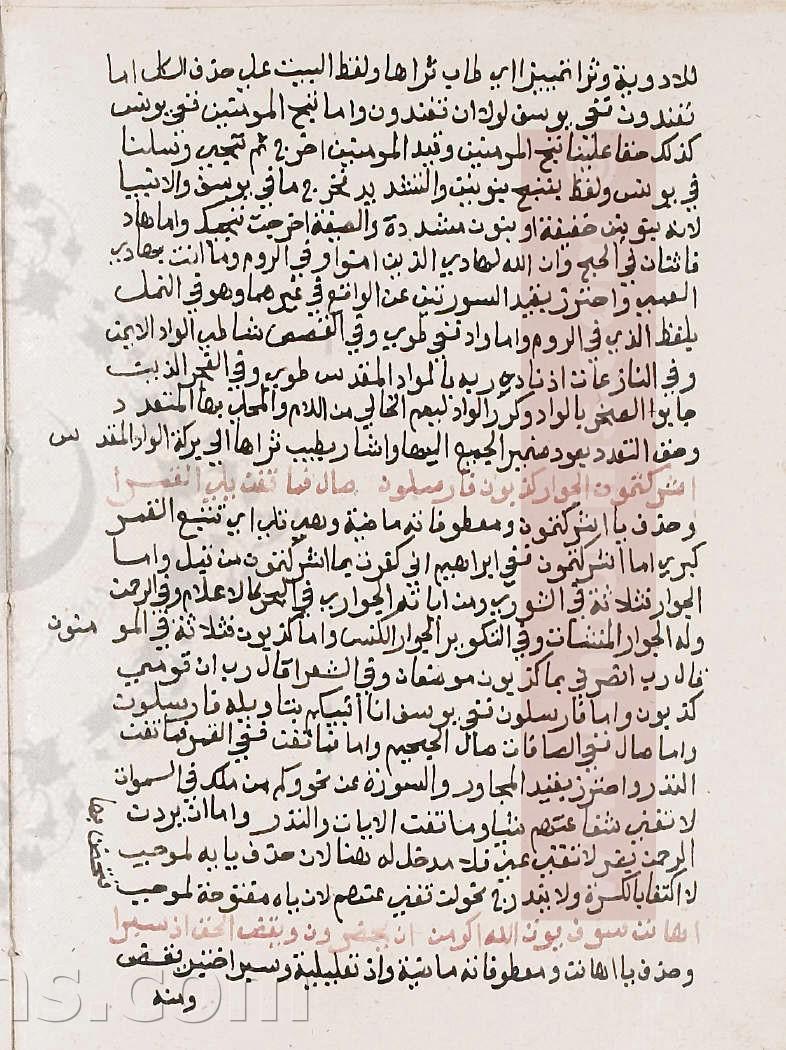 للادوية وثرا تمييزا اي طاب ثراها ولفظ البيت على حذف الكل اما
تفندون ففي يوسف لولا ان تفندون واما ننج المومنين ففي يونس
كذلك حقا علينا ننج المومنين وقيد المومنين اخرج ثم ننجي رسلنا
في يونس ولفظ بفتح ينوينت والتشديد يخرج ما في يوسف والانبيا
لانه بنونين خفيفة او بنون مشددة والصيغة اخرجت ننجيك واما هاد
فاثنتان في الحج وان الله لهادي الذين امنوا وفي الروم وما انت بهادي
العمي واحترز بقيد السورتين عن الواقع في غيرهما وهو في النمل
بلفظ الذي في الروم واما واد ففي طوى وفي القصص شاطى الواد الايمن
وفي النازعات اذ ناديه ربه بالواد المقدس طوى وفي الفجر الذين
جابوا الصخر بالواد وكرر الواد ليعم الخالي من اللام والمحلى بها المتعدد
وحق التعدد يعود ضمير الجمع اليها واشار بطيب ثراها الى بركة الواد المقدس
اشركتمون الجوار كذبون فارسلون صال فما تغن يلي القمرا
وحذف يا اشركتمون ومعطوفاته ماضية وهي يلي اي تتبع القمر
كبرى اما اشركتمون ففي ابراهيم اني كفرت بما اشركتمون من قبل واما
الجوار فثلاثة في الشورى ومن اياته الجوار في البحر كالاعلام وفي الرحمن
وله الجوار المنشات وفي التكوير الجوار الكنس واما كذبون فثلاثة في المومنون
قال رب انصرني بما كذبون موضعان وفي الشعرا قال رب ان قومي
كذبون واما فارسلون ففي يوسف انا انبيكم بتاويله فارسلون
واما صال ففي الصافات صال الجحيم واما فما تغن ففي القمر فما تغن
النذر واحترز بقيد المجاور والسورة عن نحو وكم من ملك في السموات
لا تغني شفاعتهم شيا وما تغن الايات والنذر واما ان يردن
الرحمن بضر لا تغن عني فلا مدخل له هنا لان حذف يايه لموجب
لا اكتفا بالكسرة ولا يندرج نحو لن تغني عنهم لان ياه مفتوحة لموجب
اهانن سوف يوت الله اكرمن ان يحضرون ويقض الحق اذ سبرا
وحذف يا اهانن ومعطوفاته ماضية واذ تعليلية وسبر اختبر
ومنه
ns.com